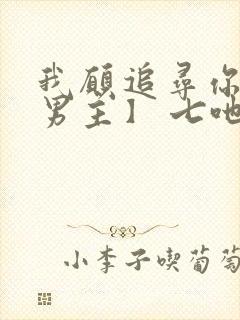 我愿追寻你
男主】 七吔
小李子喫葡萄